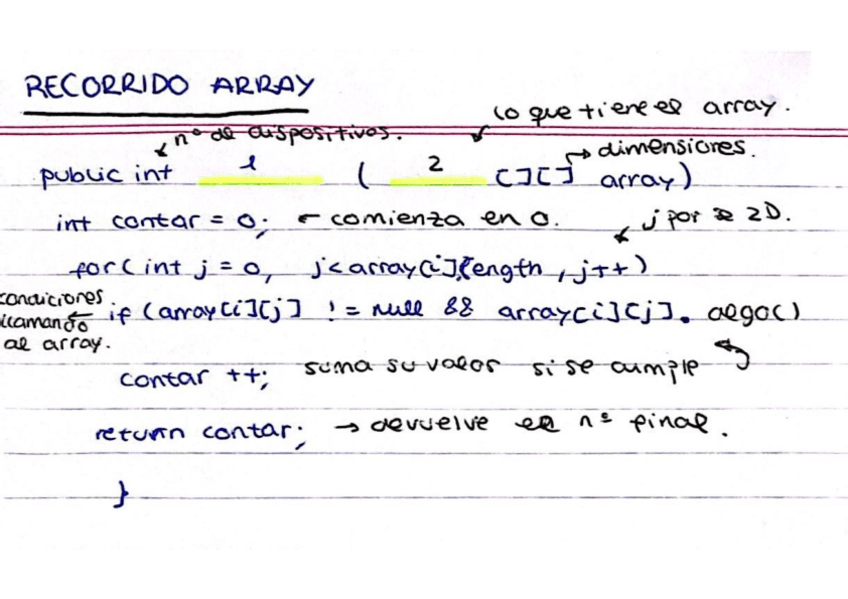 RECORRIDO ARRAY
lo que tiene el array.
nº de dispositivos.
dimensiones.
public int 1 ( 2 [][] array)
int contar = 0; ← comienza en 0.
j por 2D.
for( int j = 0, j<array[i].length, j++)
condiciones llamando al array.
if (array[i][j] != null && array[i][j]. algo()
contar ++; suma su valor si se cumple
return contar; → devuelve el nº final.
}